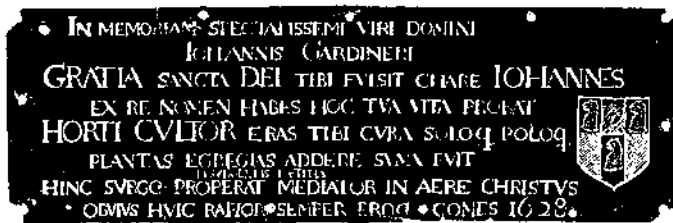 IN MEMORIAM SPECTATISSIMI VIRI DOMINI
IOHANNIS GARDINERI
GRATIA SANCTA DEI TIBI FVLSIT CHARE IOHANNES
EX RE NOMEN HABES HOC TVA VITA PROBAT
HORTI CVLTOR ERAS TIBI CVRA SOLOq POLOq
PLANTAS EGREGIAS ADDERE SVMMA FVIT
HINC SVRGO PROPERAT MEDIATOR IN AERE CHRISTVS
OBVIVS HVIC RAPIOR SEMPER EROQ COMES 1628